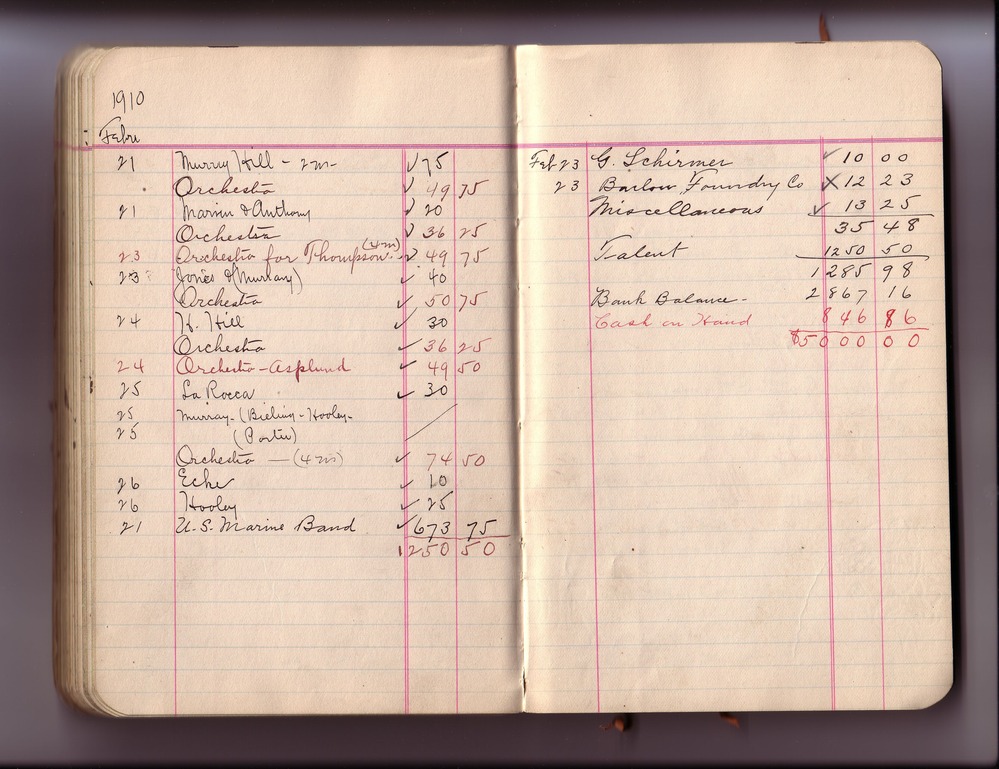 1910
Febru
21 Murry Hill - 2m- ✓ 75
Orchestra ✓ 49 75
21 Marvin & Anthony ✓ 20
Orchestra ✓ 36 25
23 Orchestra for Thompson (4m) ✓ 49 75
23 Jones & (Murray) ✓ 40
Orchestra ✓ 50 75
24 H. Hill ✓ 30
Orchestra ✓ 36 25
24 Orchestra - Asplund ✓ 49 50
25 La Rocca ✓ 30
25 Murray - (Bieling - Hooley -
25 (Porter)
Orchestra - (4m) ✓ 74 50
26 Ecke ✓ 10
26 Hooley ✓ 25
21 U.S. Marine Band ✓ 673 75
1250 50
Feb 23 G. Schirmer ✓ 10 00
23 Barlow Foundry Co X 12 23
Miscellaneous ✓ 13 25
35 48
Talent 1250 50
1285 98
Bank Balance - 2867 16
Cash on Hand 846 86
$5000 00